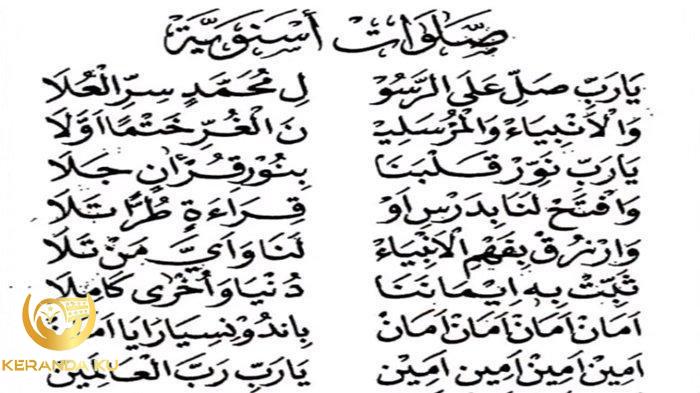 صَلَوَاتْ أَسْنَوِيَّة
يَارَبِّ صَلِّ عَلَى الرَّسُوْ لِ مُحَمَّدٍ سِرِّ الْعُلَا
وَالْأَنْبِيَاءْ وَالْمُرْسَلِيْ نَ الْغُرِّ خَتْمًا أَوَّلَا
يَارَبِّ نَوِّرْ قَلْبَنَا بِنُوْرِ قُرْأٰنٍ جَلَا
وَافْتَحْ لَنَا بِدَرْسِ اَوْ قِرَاءَةٍ طُرًّا تَلَا
وَارْزُقْ بِفَهْمِ الْاَنْبِيَاءْ لَنَا وَاَيَّ مَنْ تَلَا
ثَبِّتْ بِهِ اِيْمَانَنَا دُنْيَا وَأُخْرٰى كَامِلَا
اَمَانْ اَمَانْ اَمَانْ اَمَانْ بِاندُونيسِيَارَايَا اَمَانْ
اٰمِيْنْ اٰمِيْنْ اٰمِيْنْ اٰمِيْنْ يَارَبِّ رَبَّ الْعَالَمِيْنْ
KERANDA KU